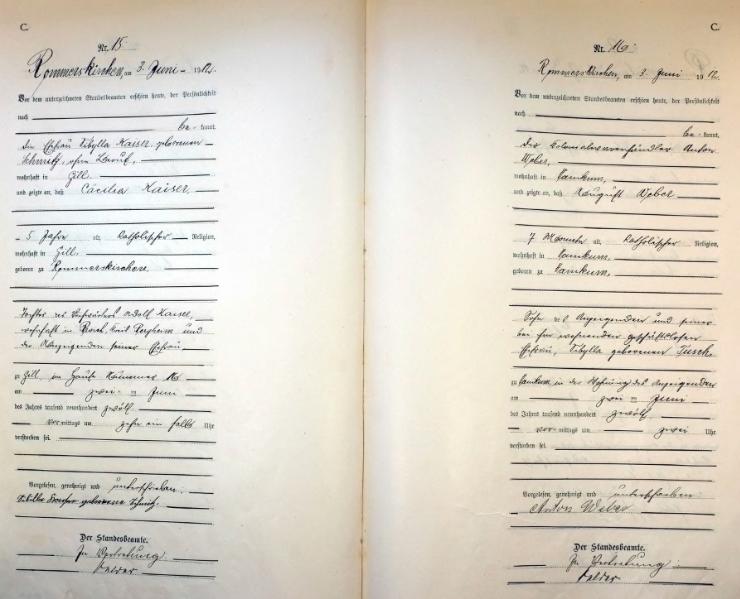 C.
Nr. 15.
Rommerskirchen, am 3. Juni 1912.
Vor dem unterzeichneten Standesbeamten erschien heute, der Persönlichkeit
nach
be-kannt,
die Ehefrau Sibylla Kaiser geborenen
Schmitz, ohne Beruf,
wohnhaft in Gill,
und zeigte an, daß Cäcilia Kaiser,
5 Jahre alt, katholischer Religion,
wohnhaft in Gill,
geboren zu Rommerskirchen,
Tochter des Adolf Kaiser,
wohnhaft in und
der Anzeigenden seiner Ehefrau
zu Gill, im Hause Nummer
am zwei ten Juni
des Jahres tausend neunhundert zwölf
vormittags um zehn ein halb Uhr
verstorben sei.
Vorgelesen, genehmigt und unterschrieben:
geborene Schmitz.
Der Standesbeamte.
In Vertretung
C.
Nr. 16.
Rommerskirchen, am 3. Juni 1912.
Vor dem unterzeichneten Standesbeamten erschien heute, der Persönlichkeit
nach
be-kannt,
der Kolonialwarenhändler Anton
Weber,
wohnhaft in
und zeigte an, daß August Weber
7 Monate alt, katholischer Religion,
wohnhaft in
geboren zu
Sohn des Anzeigenden und seiner
bei ihm wohnenden geschäftslosen
Ehefrau, Sibylla geborenen
zu in der Wohnung des Anzeigenden
am zwei ten Juni
des Jahres tausend neunhundert zwölf
vormittags um zwei Uhr
verstorben sei.
Vorgelesen, genehmigt und unterschrieben:
Anton Weber
Der Standesbeamte.
In Vertretung